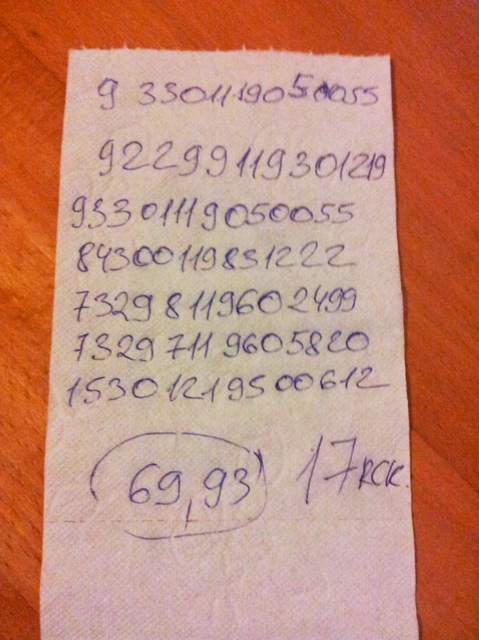 9 3301119050055
92299119301219
93301119050055
84300119851222
73298119602499
73297119605820
15301219500612
69,93 17 кск.